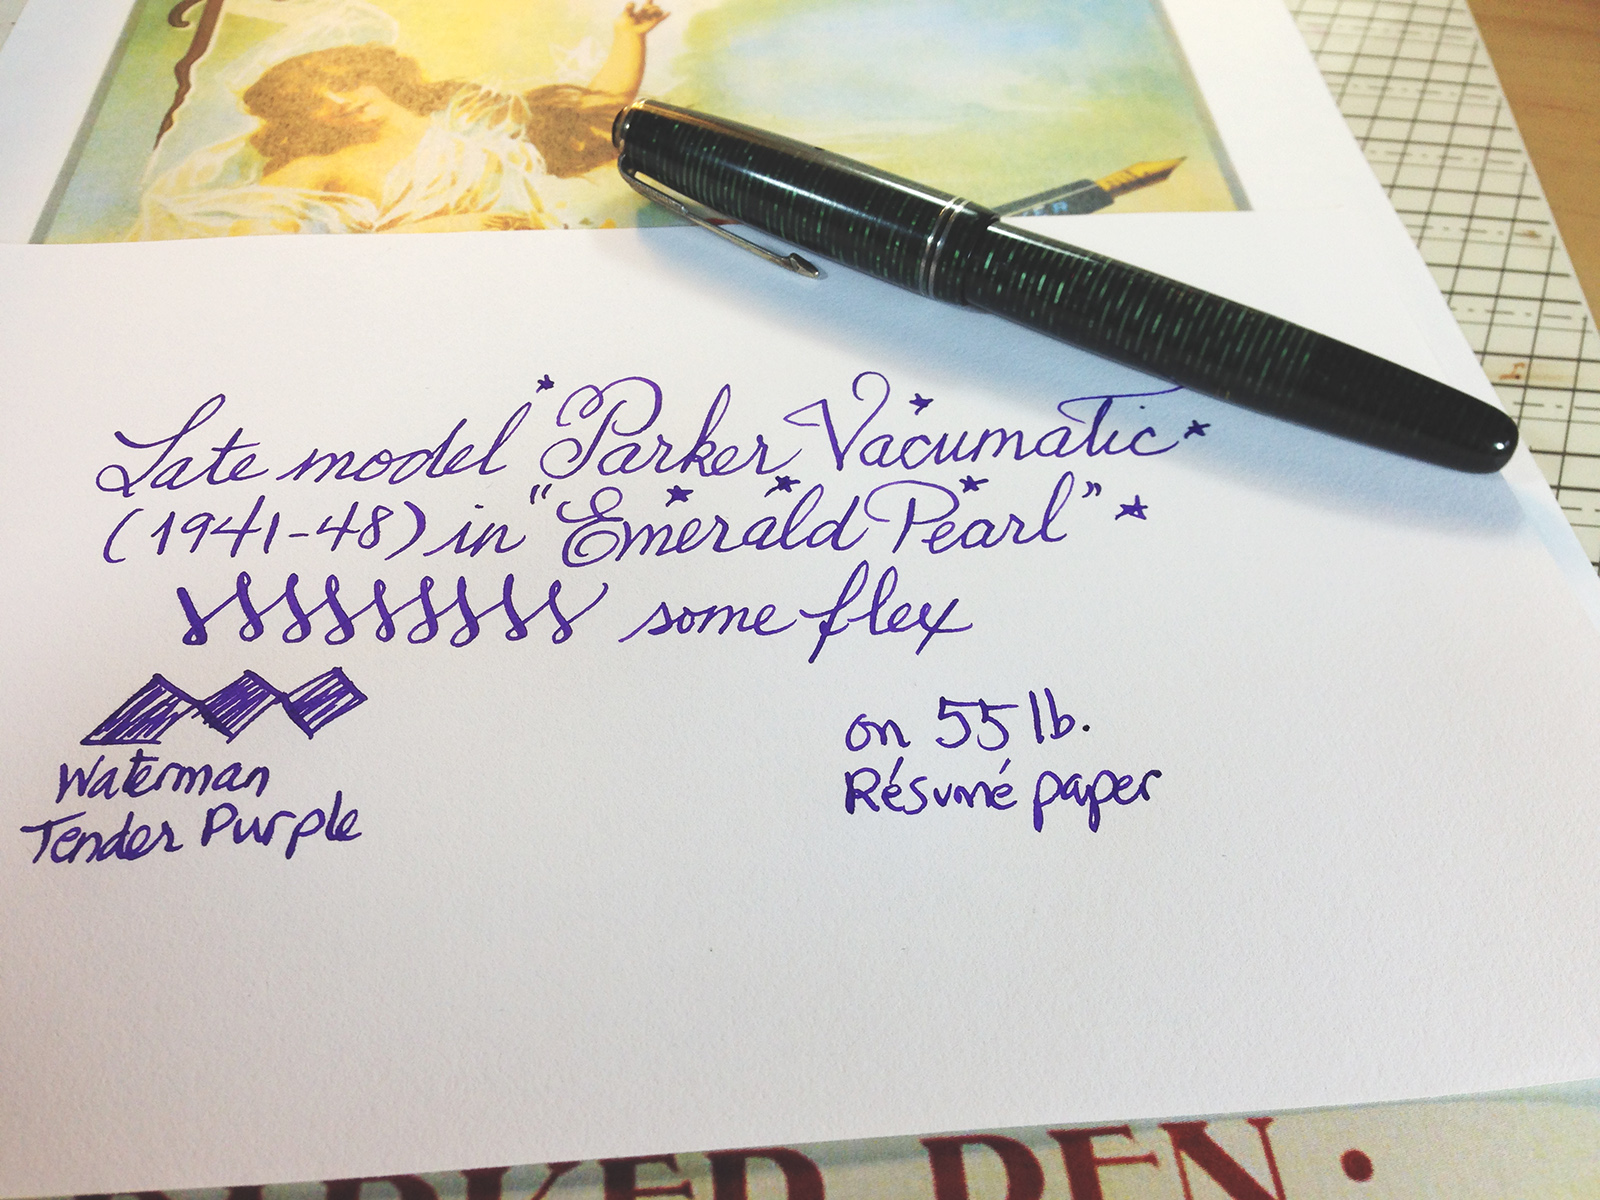 Late model Parker Vacumatic
(1941-48) in "Emerald Pearl"
some flex
Waterman
Tender Purple
on 55 lb.
Résumé paper
PARKER PEN.